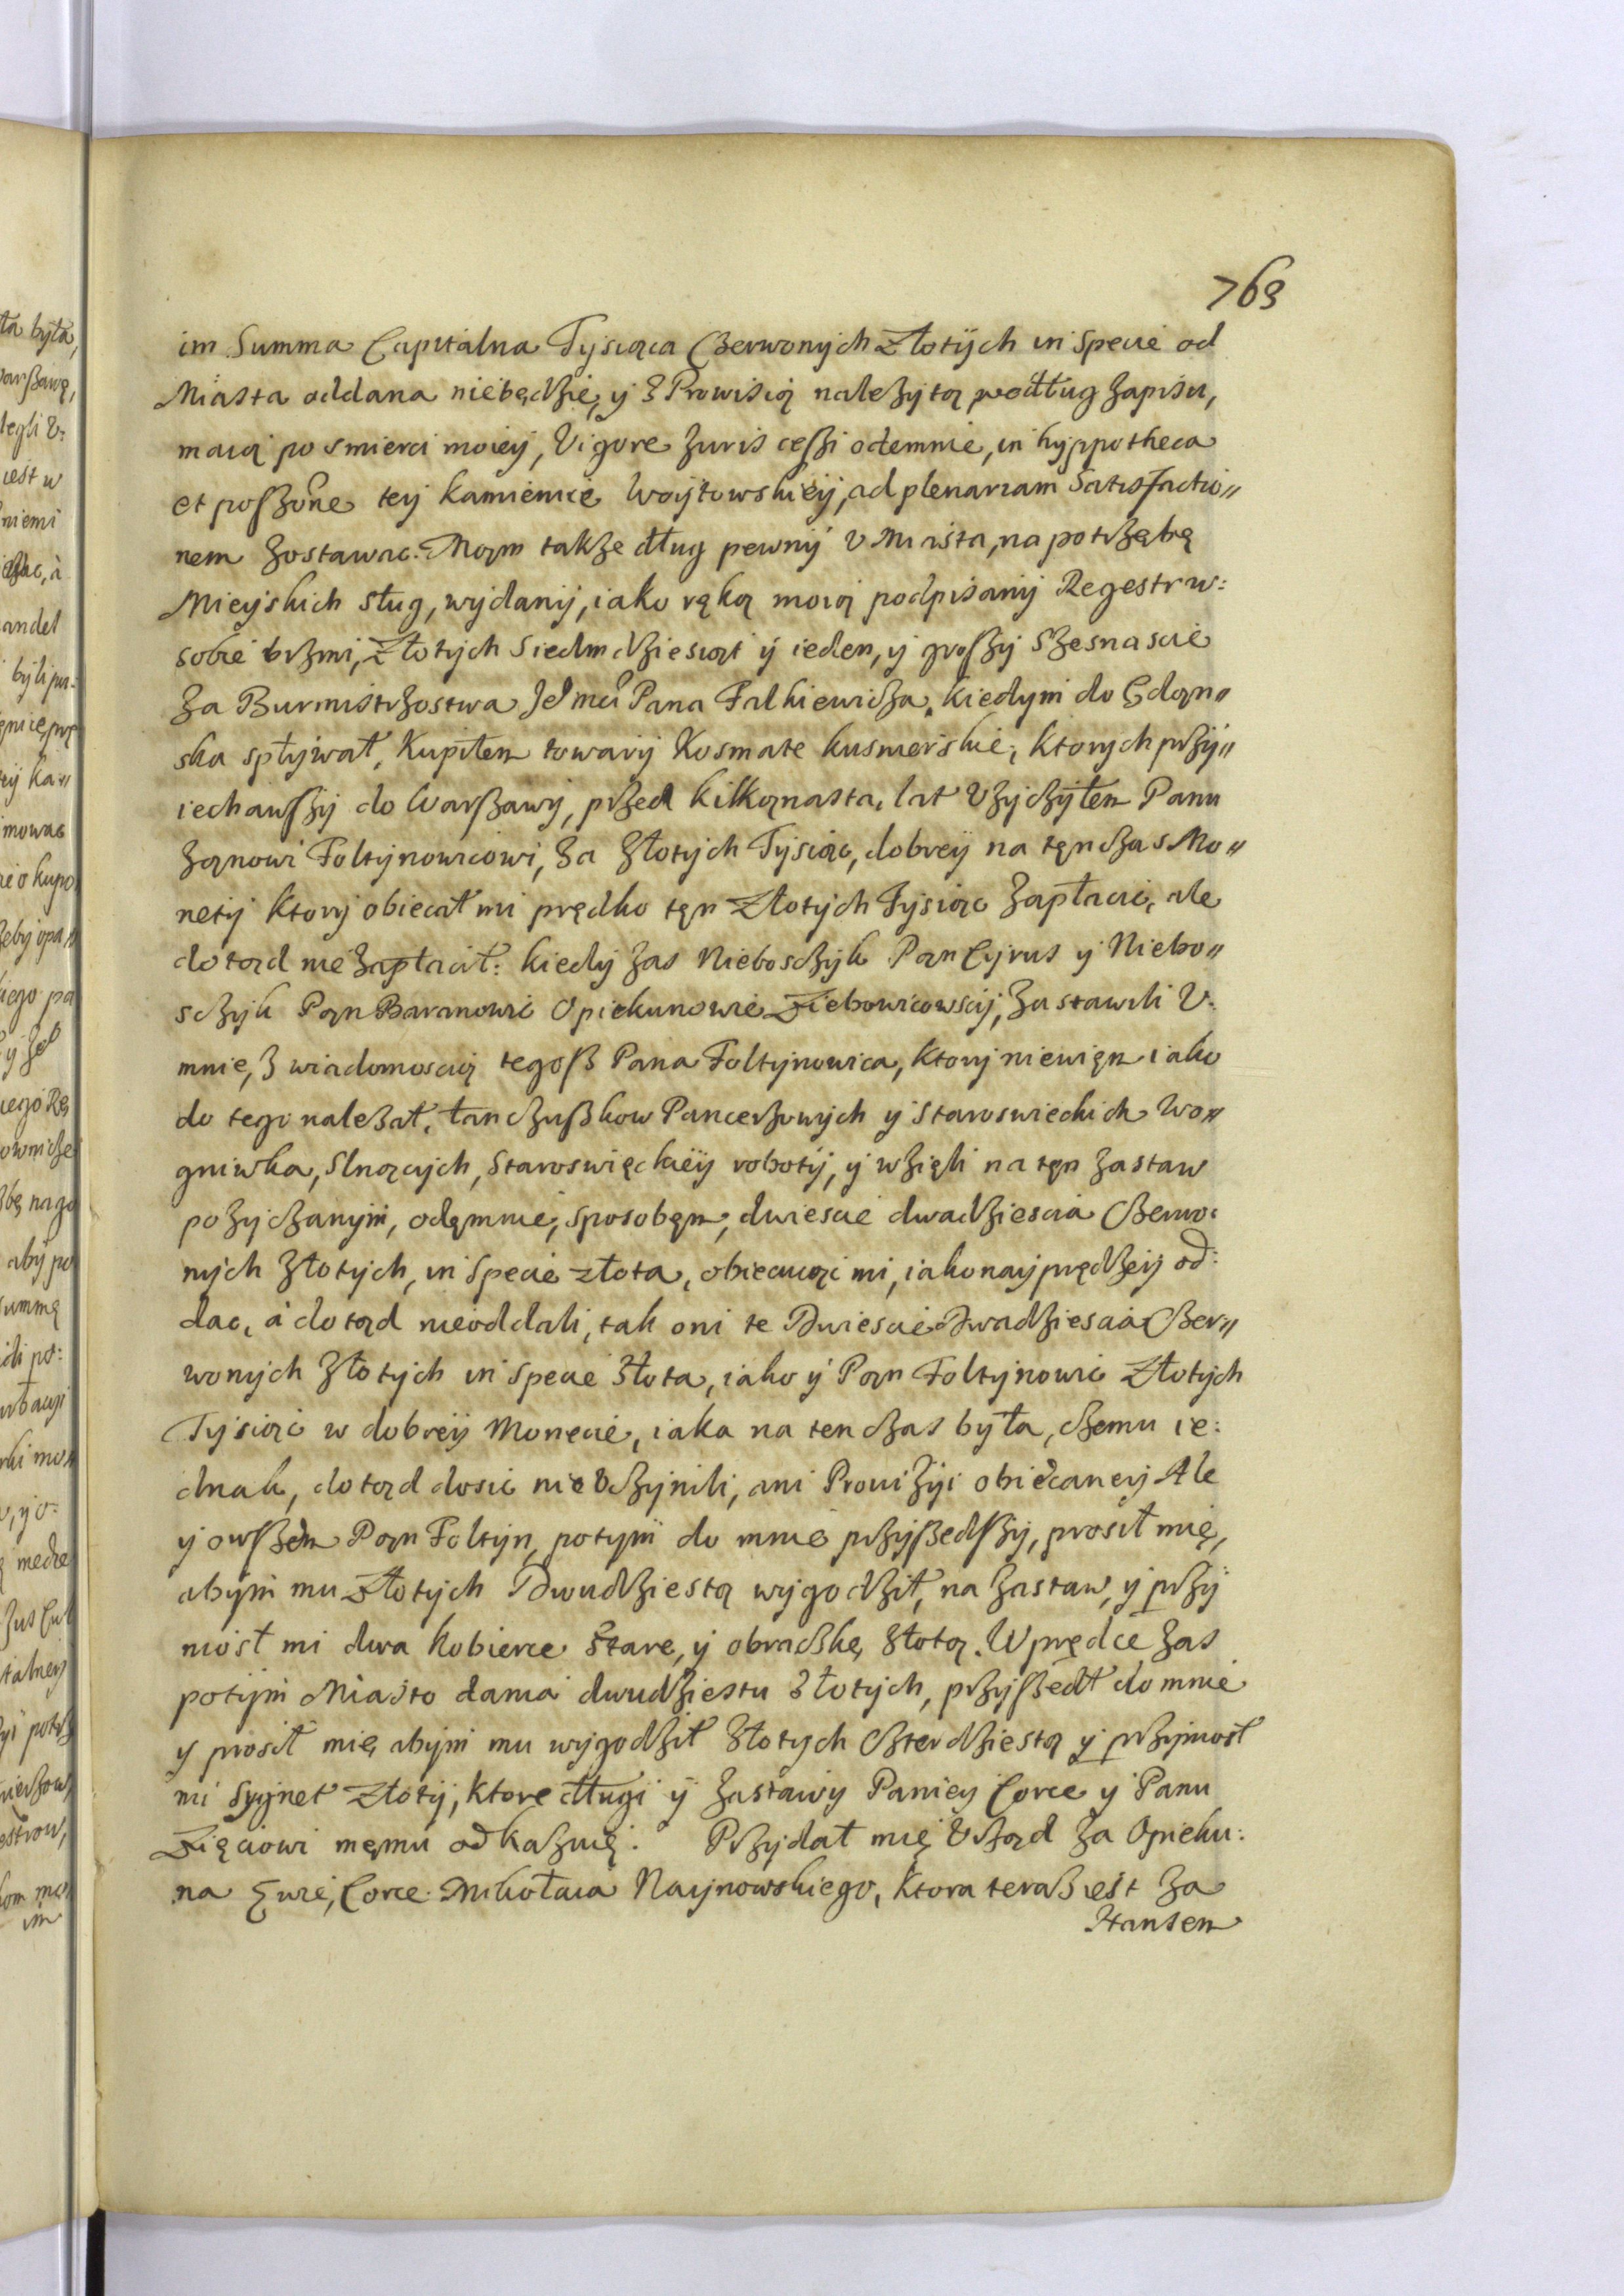 763
im Summa Capitalna Tysiąca Czerwonych Złotych in Specie od
Miasta oddana niebędzie, y z Prowisią należytą według zapisu,
maią po smierci moiey, Vigore Juris cessi odemnie, in hyppotheca
et possione tey kamienice Woytowskiey, ad plenariam Satisfactio〃
nem zostawac. Mąm także dług pewny V Miasta, na potrzębę
Mieyskich sług, wydany, iako ręką moią podpisany Regestr w:
sobie brzmi, Złotych Siedmdziesiąt y ieden, y groszy szesnascie
za Burmistrzostwa Je᷎mci Pana Falkiewicza. kiedym do Gdąn〃
ska spływał, Kupiłem towary Kosmate kusmerskie, ktorych przy〃
iechawszy do Warszawy, przed kilkąnasta, lat Vzyczyłem Panu
Jąnowi Foltynowicowi, za złotych Tysiąc, dobrey na tęn czas Mo〃
nety ktory obiecał mi prędko tęn Złotych Tysiąc zapłacic, ale
dotąd nie zapłacił: kiedy zas Nieboszczyk Pąn Cyrus y Niebo〃
szczyk Pąn Baranowic Opiekunowie Ziebowicowscy, zastawili V:
mnie, z wiadomoscią tegosz Pana Foltynowica, ktory niewięm iako
do tego należał, łanczuszkow Pancerzowych y Staroswieckich wo〃
gniwka, slnących, Staroswięckiey roboty, y wzięli na tęn zastaw
pożyczanym, odęmnie, sposobęm, dwiescie dwadziescia Czerwo:
nych złotych, in Specie złota, obiecuiąc mi, iakonayprędzey od:
dac, à dotąd nieoddali, tak oni te Dwiescie Dwadziescia Czer〃
wonych złotych in Specie złota, iako y Pąn Foltynowic Złotych
Tysiąc w dobrey Monecie, iaka na ten czas była, czemu ie:
dnak, dotąd dosic nie Vczynili, ani Prowizyi obiecaney Ale
y owszem Pąn Foltyn, potym do mnie przyszedszy, prosił mię,
abym mu Złotych Dwudziestą wygodził, na zastaw, y przy
niosł mi dwa kobierce stare, y obraczkę złotą. Wprędce zas
potym Miasto dania dwudziestu złotych, przyszedł do mnie
y prosił mię abym mu wygodził złotych czterdziestą y przyniosł
mi Sygnet złoty, ktore długi y zastawy Paniey Corce y Panu
Zięciowi męmu odkazuię. Przydał mię Vrząd za Opieku:
na Ewie, Corce Mikołaia Naynowskiego, ktora teraz iest za
Hansem